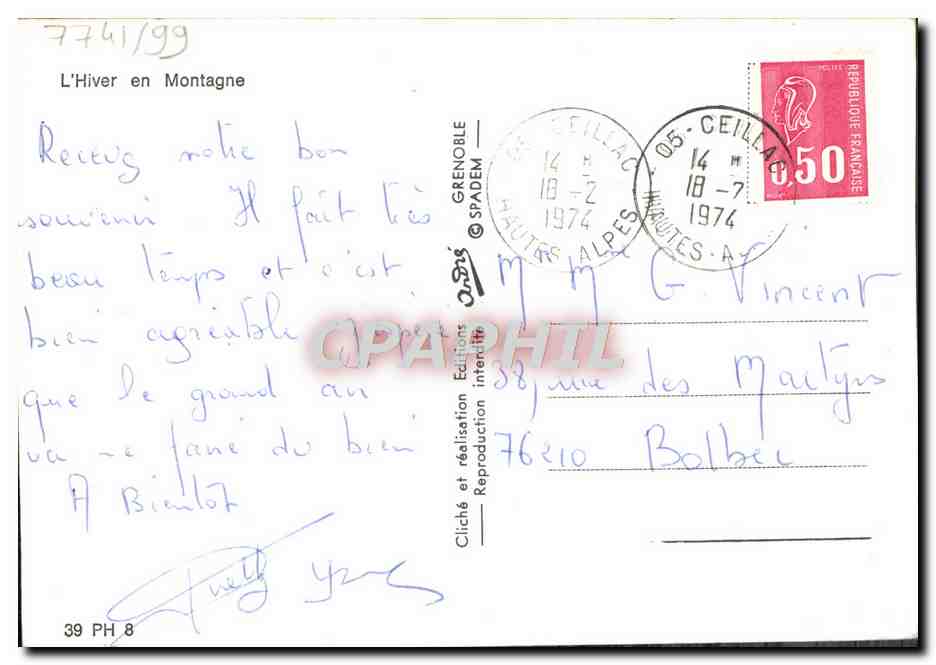 7741/99
L'Hiver en Montagne
Recevez notre bon
souvenir Il fait très
beau temps et c'est
bien agréable J'espère
que le grand air
va me faire du bien
A Bientôt
39 PH 8
Cliché et réalisation Editions André GRENOBLE
Reproduction interdite © SPADEM
05 - CEILLAC
14 H
18 -2
1974
HAUTES ALPES
05 - CEILLAC
14 H
18 -2
1974
HAUTES - A
REPUBLIQUE FRANÇAISE
POSTES
0,50
M Mme G. Vincent
38, rue des Martyrs
76210 Bolbec
CPAPHIL